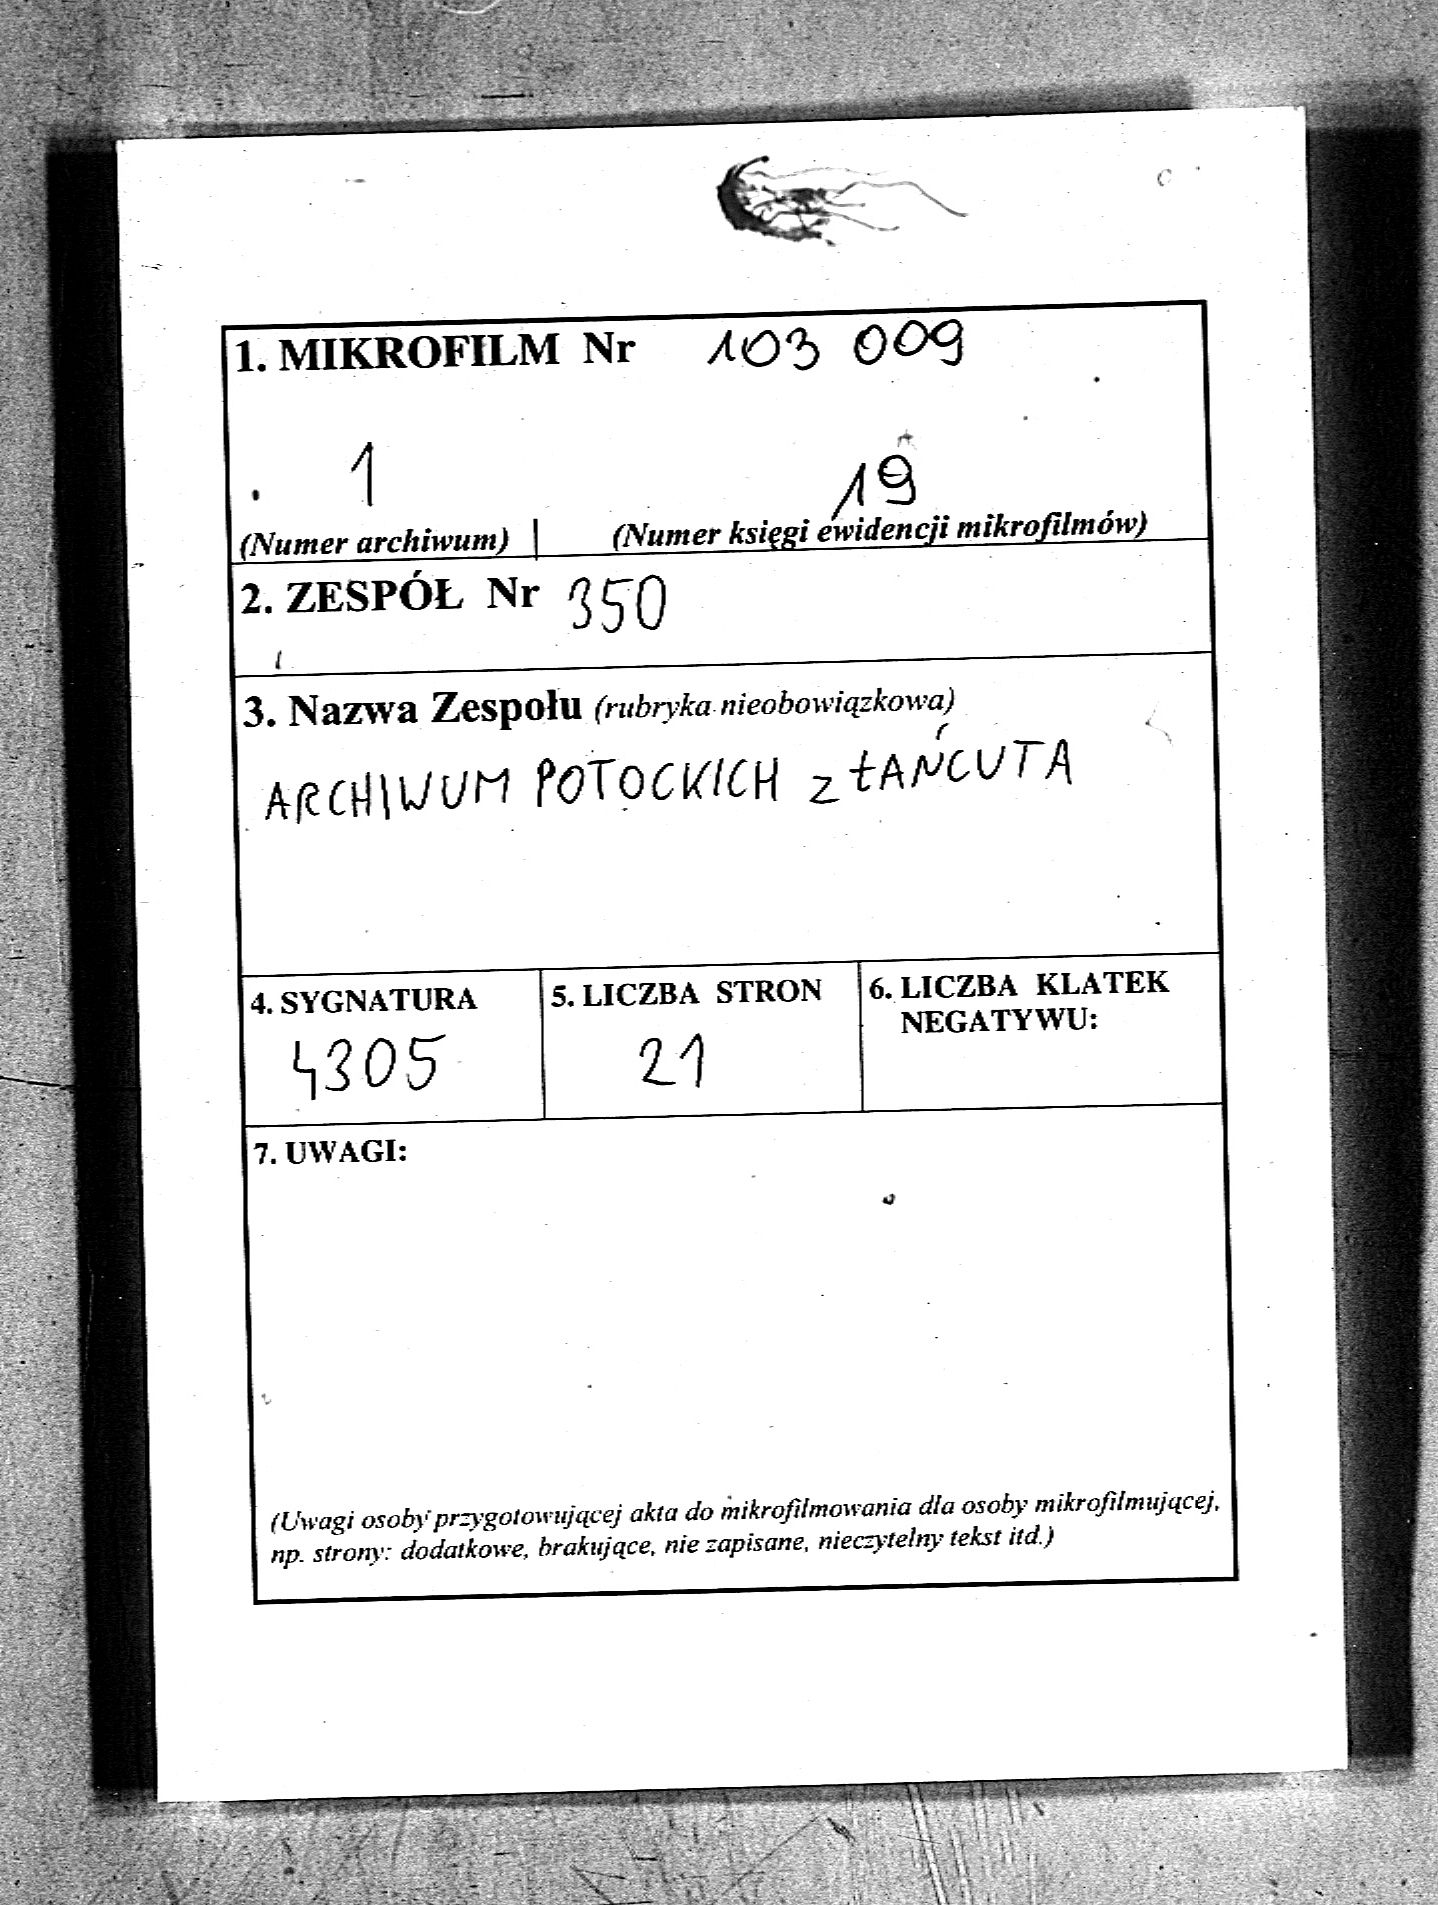 1. MIKROFILM Nr 103 009
1 19
(Numer archiwum) | (Numer księgi ewidencji mikrofilmów)
2. ZESPÓŁ Nr 350
3. Nazwa Zespołu (rubryka nieobowiązkowa)
ARCHIWUM POTOCKICH z ŁAŃCUTA
4. SYGNATURA 5. LICZBA STRON 6. LICZBA KLATEK
NEGATYWU:
4305 21
7. UWAGI:
(Uwagi osoby przygotowującej akta do mikrofilmowania dla osoby mikrofilmującej,
np. strony: dodatkowe, brakujące, nie zapisane, nieczytelny tekst itd.)